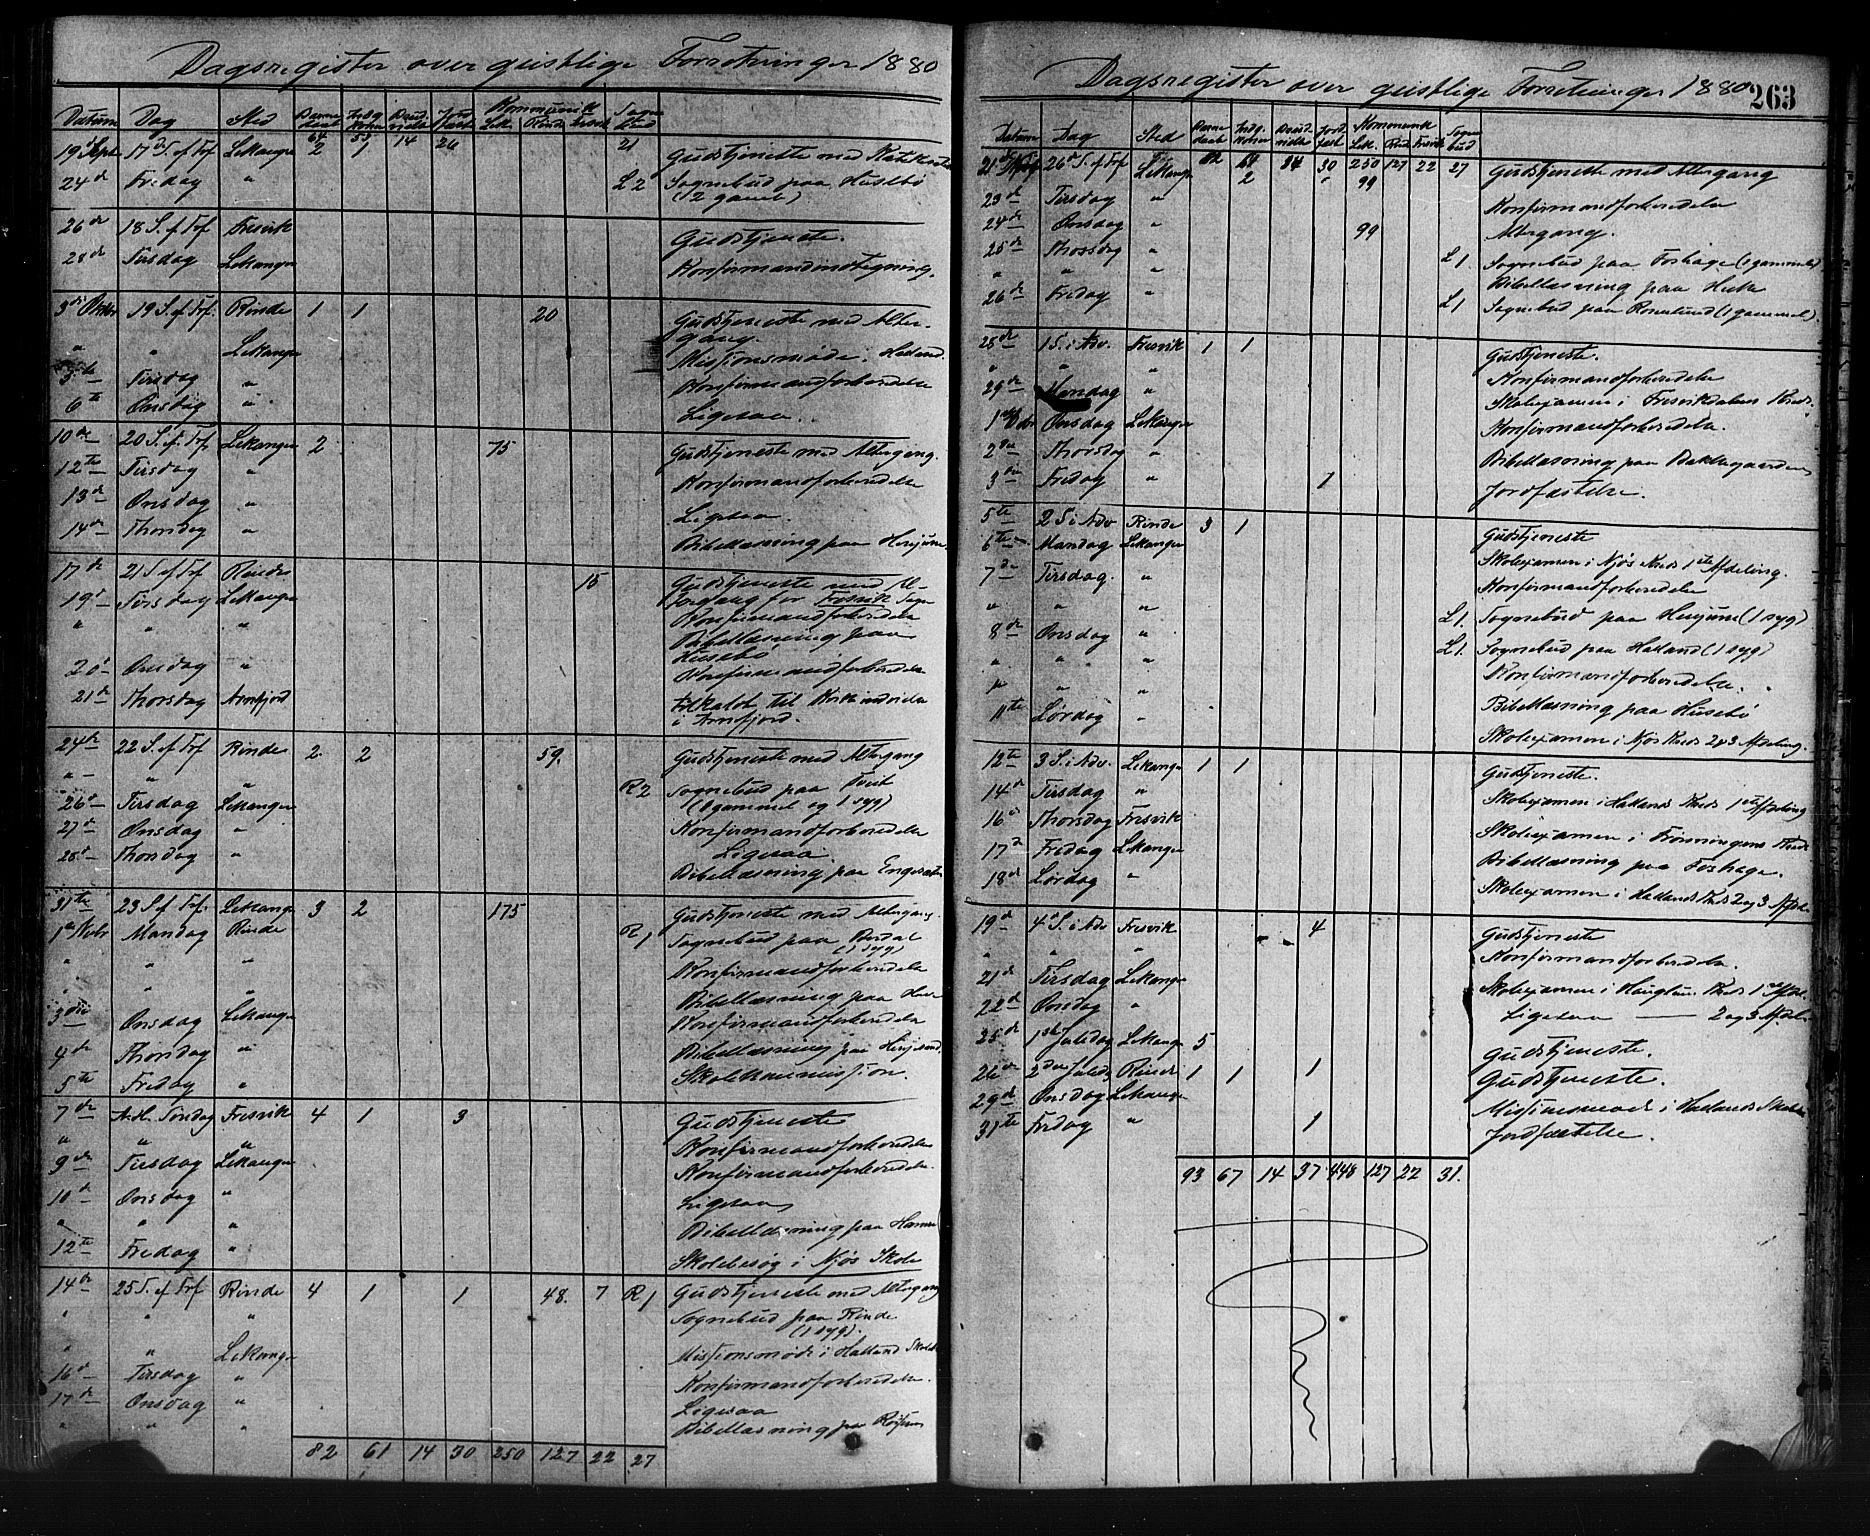 Dagsregister over geistlige Forretninger 1880
Datum Dag Sted Kommunik. Sogne bud
Lek. Rinde Fresvik
64 53 14 26 21
19 Septr 17de S. ef Trf Lekanger 2 1 Gudstjeneste med
24de Fredag " L 2 Sognebud paa Husebö
(2 gamle)
26de 18 S. ef Trf Fresvik Gudstjeneste.
28de Tirsdag Lekanger Konfirmandindtegning.
3die Oktbr 19 S. ef Trf. Rinde 1 1 20 Gudstjeneste med Alter-
gang.
" " Lekanger Missionsmöde.
5te Tirsdag " Konfirmandforberedelse
6te Onsdag " Ligesaa.
10de 20 S. ef. Trf. Lekanger 2 75 Gudstjeneste med Altergang.
12te Tirsdag " Konfirmandforberedelse
13de Onsdag " Ligesaa.
14de Thorsdag " Bibellæsning paa
17de 21 S. ef Trf Rinde 15 Gudstjeneste med Al-
tergang for Fresvik Sogn
19de Tirsdag Lekanger Konfirmandforberedelse
" " " Bibellæsning paa
Husebö
20de Onsdag " Konfirmandforberedelse
21de Thorsdag Arnefjord
i Arnefjord.
24de 22 S. ef Trf Rinde 2. 2 59. Gudstjeneste med Altergang
" " " R 2 Sognebud paa Tveit
(1 gammel og 1 syg)
26de Tirsdag Lekanger Konfirmandforberedelse
27de Onsdag " Ligesaa.
28de Thorsdag " Bibellæsning paa
31te 23 S. ef Trf. Lekanger 3 2 175 Gudstjeneste med Altergang.
1ste Novbr Mandag Rinde R 1 Sognebud paa
(1 syg)
" " " Konfirmandforberedelse
" " " Bibellæsning paa
3die Onsdag Lekanger Konfirmandforberedelse
4de Thorsdag " Bibellæsning paa
5te Fredag " Skolekommission.
7de Søndag Fresvik 4 1 3 Gudstjeneste
" " " Konfirmandforberedelse
9de Tirsdag Lekanger Konfirmandforberedelse.
10de Onsdag " Ligesaa
" " " Bibellæsning paa
12te Fredag " Skolebesøg i Njøs Skole
14de 25 S. ef Trf Rinde 4 1 1 48. 7 R 1 Gudstjeneste med Altergang
" " " Sognebud paa Rinde
(1 syg).
" " Lekanger Missionsmöde i Hatland
16de Tirsdag " Konfirmandforberedelse.
17de Onsdag " Ligesaa
" " " Bibellæsning paa
82 61 14 30 250 127 22 27
Dagsregister over geistlige Forretninger 1880
263
Datum Dag Sted Kommunik Sogne bud
Lek. Rinde Fresvik
82 61 14 30 250 127 22 27
21de Novbr 26de S. ef Trf Lekanger 2 " 99 Gudstjeneste med Altergang
23de Tirsdag " Konfirmandforberedelse
24de Onsdag " 99 Altergang.
25de Thorsdag " L 1. Sognebud paa Foshage (1 gammel)
" " " Bibellæsning paa
26de Fredag " L 1 Sognebud paa Rosenlund (1 gammel).
28de 1 S. i Adv. Fresvik 1 1 Gudstjeneste.
" " " Konfirmandforberedelse
29de Mandag " Skolexamen i Fresvikdalens Kreds.
1ste Dbr Onsdag Lekanger Konfirmandforberedelse.
2den Thorsdag " Bibellæsning paa
3die Fredag " 1 Jordfæstelse.
5te 2 S i Adv Rinde 3 1 Gudstjeneste
6te Mandag Lekanger Skolexamen i Njøs Kreds 1ste Afdeling.
7de Tirsdag. " Konfirmandforberedelse
" " " L 1. Sognebud paa (1 syg)
8de Onsdag " L 1. Sognebud paa Hatland (1 syg)
" " " Konfirmandforberedelse.
" " " Bibellæsning paa Husebö
11te Lørdag " Skolexamen i Njøs Kreds 2 og 3 Afdeling.
12te 3 S. i Adv. Lekanger 1 1 Gudstjeneste.
14de Tirsdag " Skolexamen i Hatlands Kreds 1ste Afdeling
16de Thorsdag Fresvik Skolexamen i Frønningens Kreds
17de Fredag Lekanger Bibellæsning paa Foshage.
18de Lørdag " Skolexamen i Hatlands Kreds 2 og 3 Afdel.
19de 4de S. i Adv Fresvik 4 Gudstjeneste
" " Konfirmandforberedelse.
21de Tirsdag Lekanger Skolexamen i Hauglum Kreds 1ste Afdel.
22de Onsdag " Ligesaa — 2 og 3 Afdel.
25de 1ste Juledag Lekanger 5 Gudstjeneste.
26de 2den Juledag Rinde 1 1 1 Gudstjeneste.
29de Onsdag Lekanger Missionsmøde i Hatlands Skole
31te Fredag " 1 Jordfæstelse.
93 67 14 37 448 127 22 31.